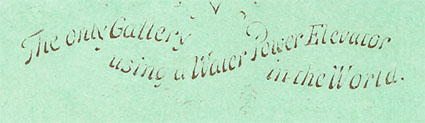 The only Gallery
using a Water Power Elevator
in the World.